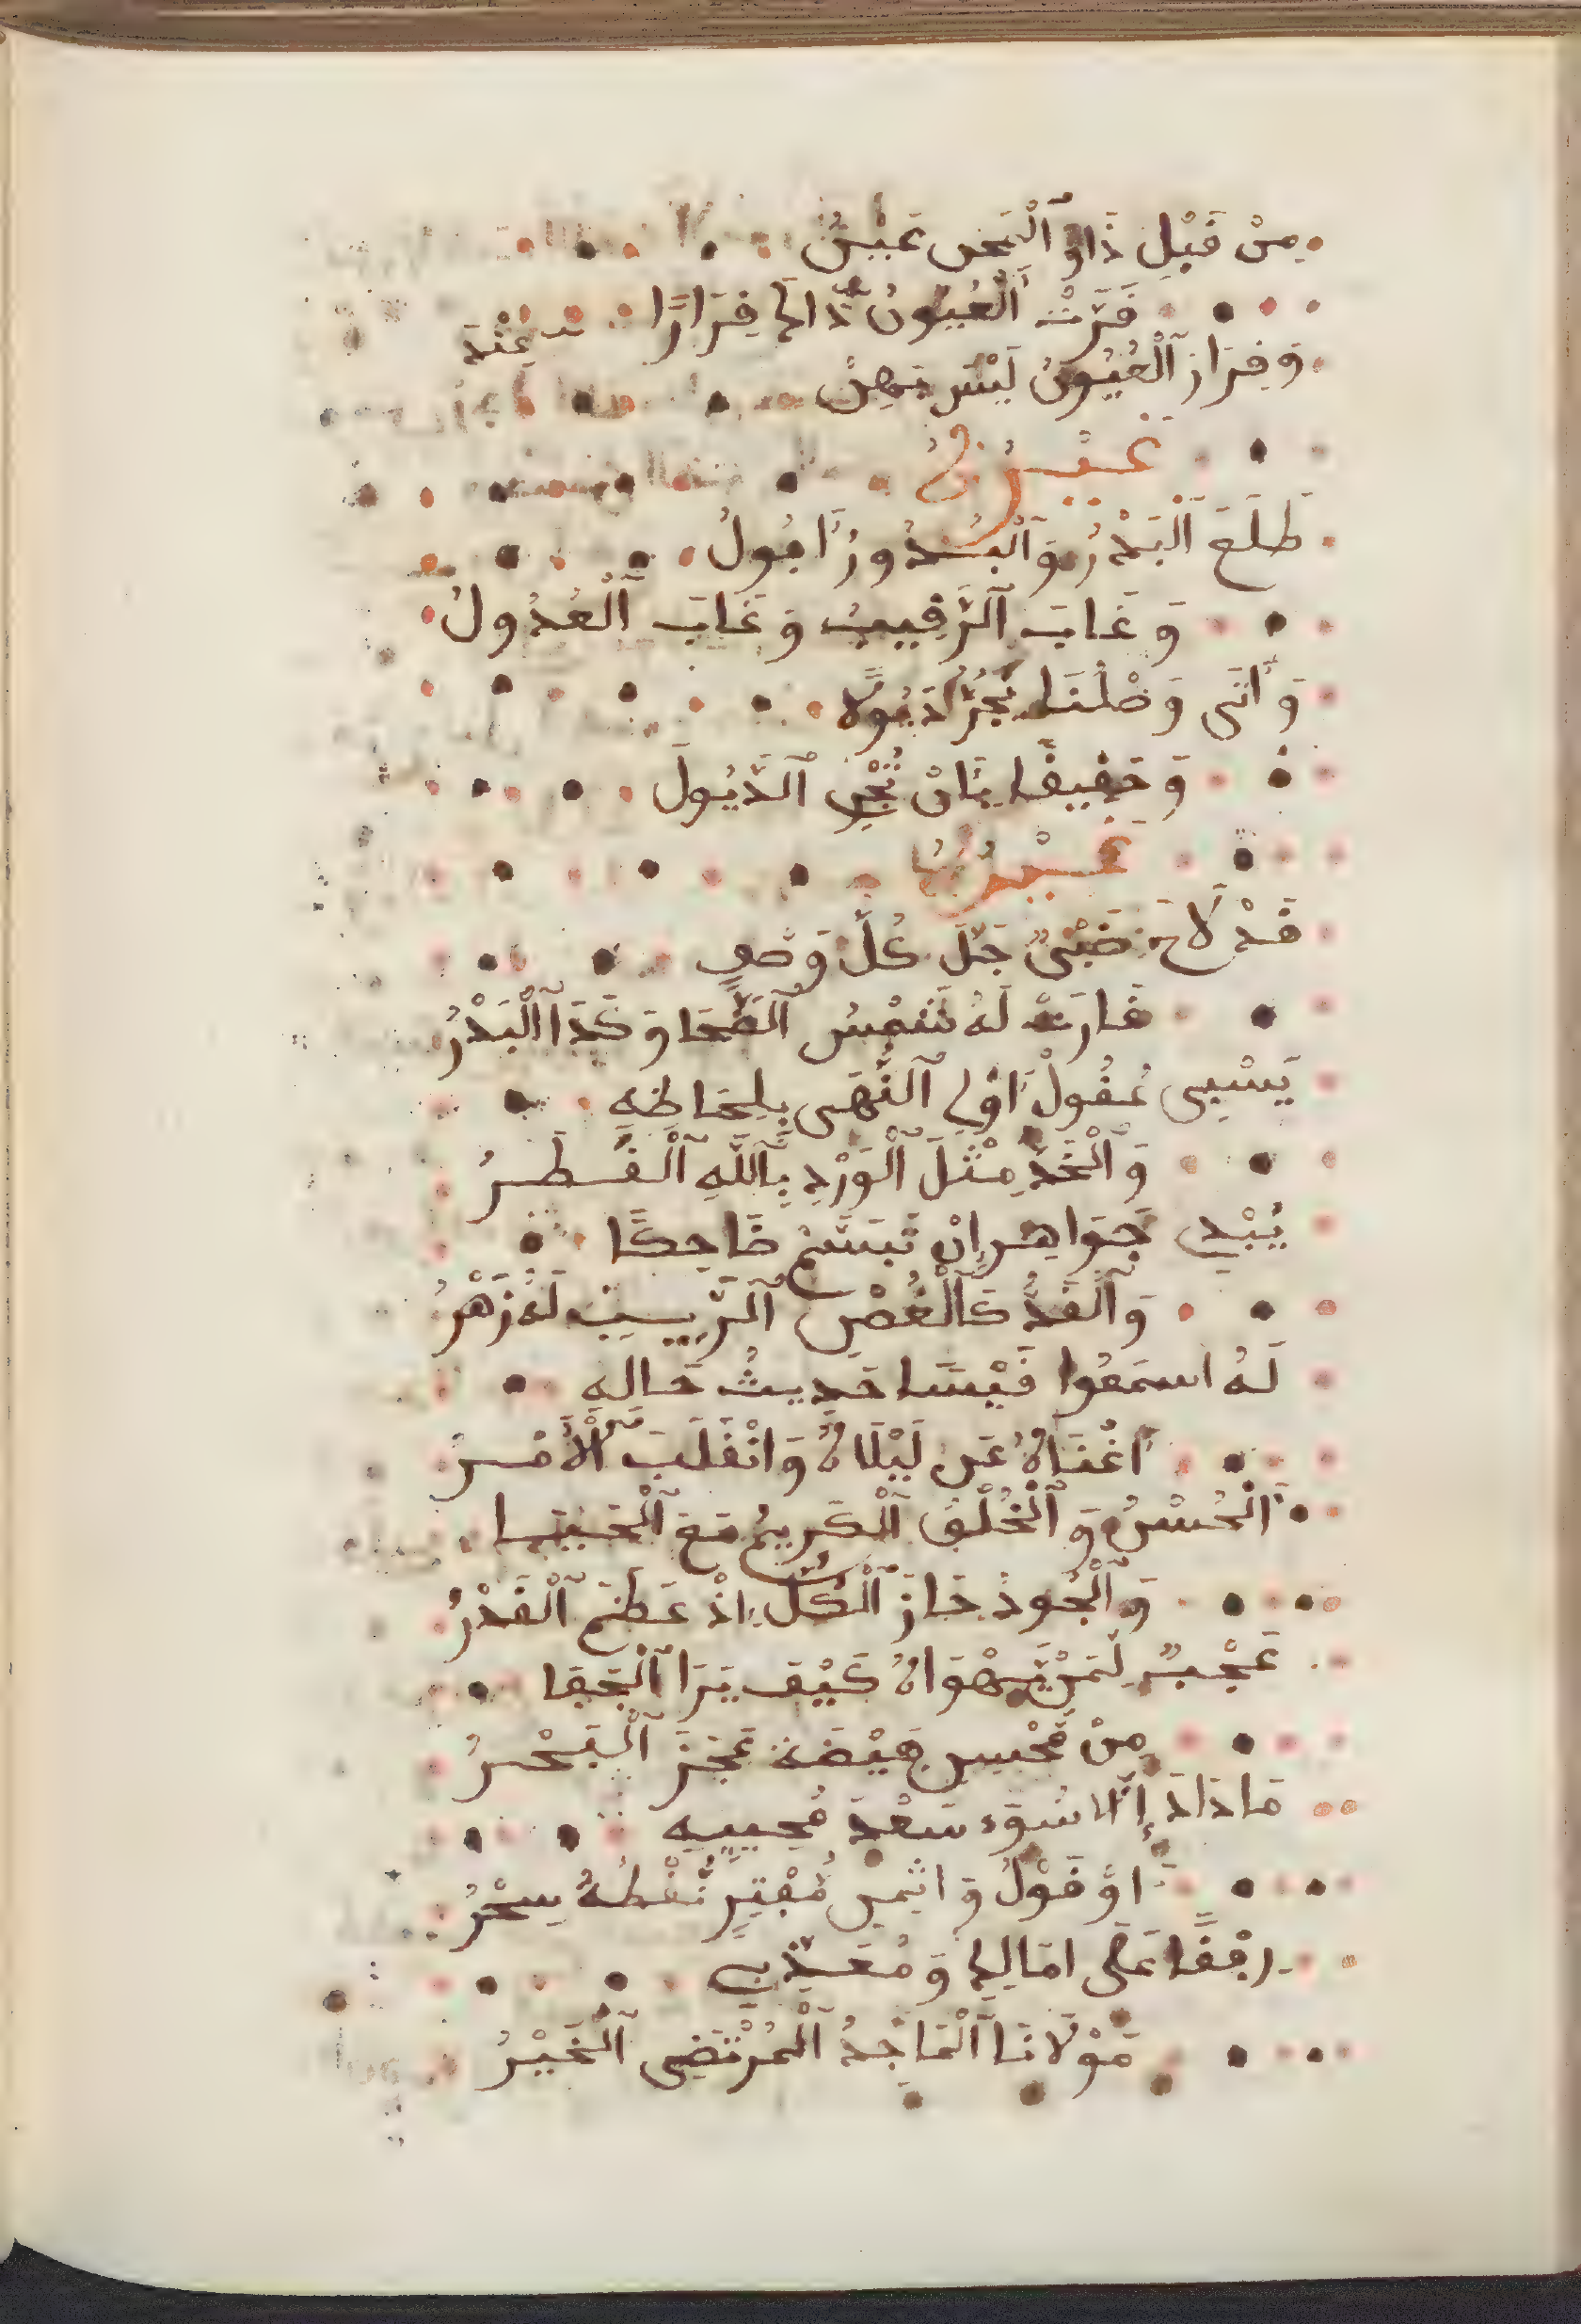 مِنْ قَبْلِ ذَاوْ الْمَحَن عَيْنُ
فَرَّتْ الْعُيُونُ ذَّالِمَ فِرَارًا
وَفِرَارْ الْعُيُونْ لَيْسَ عَنْهُنْ
غَيْرُهُ
طَلَعَ اَلْبَدْرُ وَالْبُدُورُ اُفُولُ
وَغَابَ اَلرَّقِيبُ وَغَابَ اَلْعُدُولُ
وَأَتَى وَصْلُنَا يَجُرُّ ذُيُولًا
وَحَقِيقًا بِأَنْ يَجُرَّ اَلذُّيُولَ
غَيْرُهُ
قَدْ لَاحَ ضَبْيٌ جَلَّ كُلَّ وَصْفٍ
غَارَتْ لَهُ شَمْسُ الضُّحَا وَكَذَا اَلْبَدْرُ
يَسْبِي عُقُولْ اُولِي النُّهَى بِلِحَاظِهِ
وَالْخَدِّ مِثْلَ اَلْوَرْدِ بِاللَّهِ اَلْقَطْرُ
يُبْدِي جَوَاهِر إِنْ تَبَسَّمْ ضَاحِكًا
وَالْقَدُّ كَالْغُصْنِ الرَّطِيبِ لَهُ زَهْرُ
لَهُ اسمَعُوا قَيْسًا حَدِيثُ حَالِهِ
أَغْنَاهُ عَن لَيْلَاهُ وَانْقَلَبَ الْأَمْرُ
اَلْحُسْنُ وَالْخُلْقُ الْكَرِيمُ مَعَ الْحَيَا
وَالْجُودُ حَازَ الْكُلَّ إِذْ عَظُمَ الْقَدْرُ
عَجْبٌ لِمَنْ يَهْوَاهُ كَيْفَ يَرَا اَلْجَفَا
مِنْ مُحْسِنٍ فَيْضَهْ عَجَزَ الْبَحْرُ
مَا ذَاكَ إِلَّا سُوَء سَعْدَ مُحِبِيهِ
اَوْ قَوْلُ وَاشٍ مُفْتَرٍ نُطْقُهُ سِحْرُ
رِفْقًا عَلَى امَالِي وَمُعَذِّبِي
مَوْلَانَا اَلْمَاجِدُ اَلْمُرْتَضِى اَلْخَيْرُ